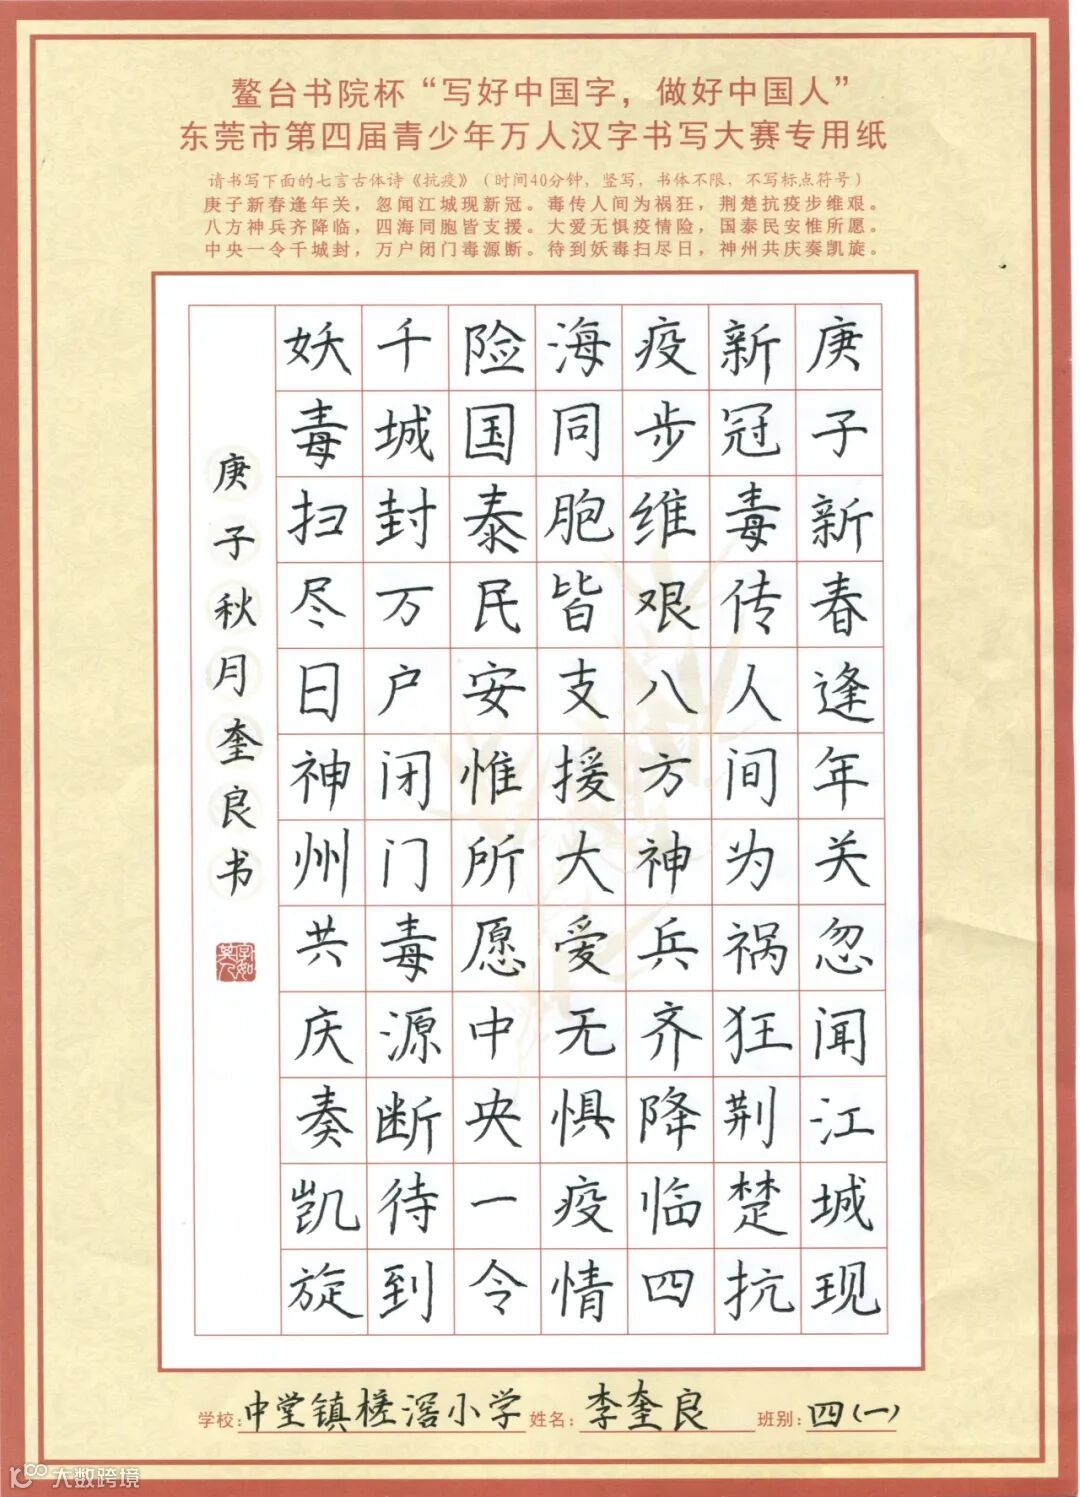 鳌台书院杯“写好中国字，做好中国人”
东莞市第四届青少年万人汉字书写大赛专用纸
请书写下面的七言古体诗《抗疫》（时间40分钟，竖写，书体不限，不写标点符号）
庚子新春逢年关，忽闻江城现新冠。毒传人间为祸狂，荆楚抗疫步维艰。
八方神兵齐降临，四海同胞皆支援。大爱无惧疫情险，国泰民安惟所愿。
中央一令千城封，万户闭门毒源断。待到妖毒扫尽日，神州共庆奏凯旋。
庚子新春逢年关忽闻江城现
新冠毒传人间为祸狂荆楚抗
疫步维艰八方神兵齐降临四
海同胞皆支援大爱无惧疫情
险国泰民安惟所愿中央一令
千城封万户闭门毒源断待到
妖毒扫尽日神州共庆奏凯旋
庚子秋月奎良书
学校：中堂镇槎滘小学 姓名：李奎良 班别：四（一）
大数跨境